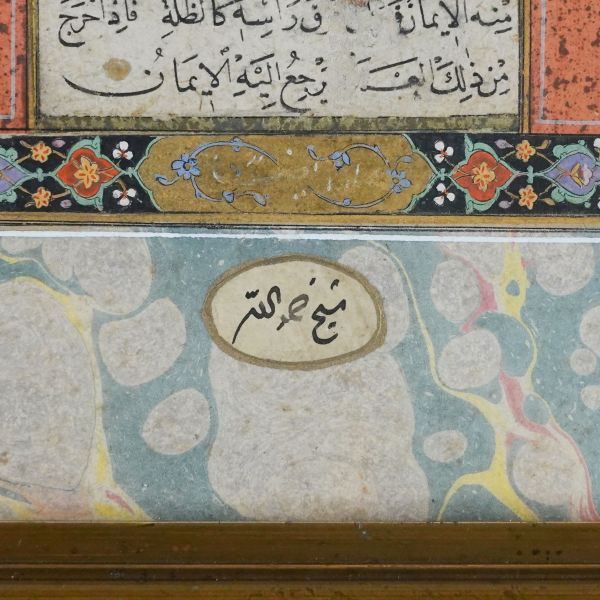 منه الإيمان فوق رأسه كالظلة فإذا خرج
من ذلك العمل يرجع إليه الإيمان
شيخ حمد الله